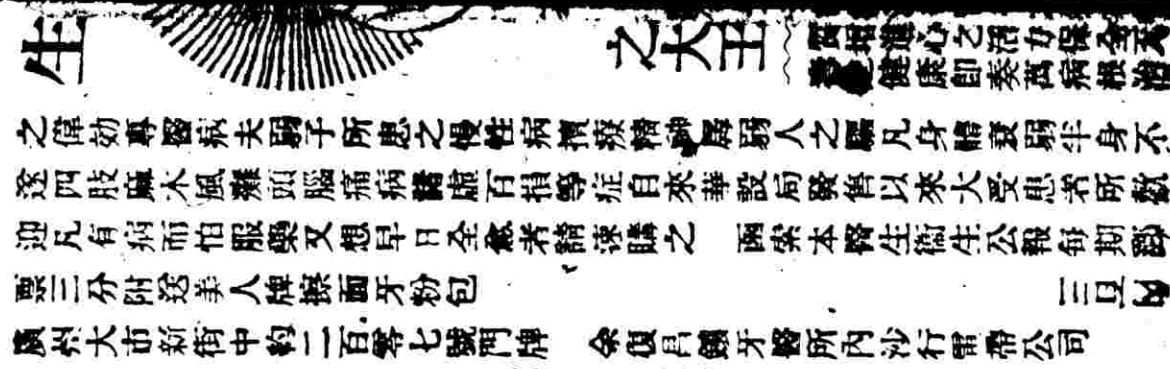 生
之大王
增進心之活力保全天
健康卽奏萬病根治
之偉効專醫病夫弱子所患之慢性病擯療精神孱弱人之軀凡身體衰弱半身不
遂四肢麻木風癱頭腦痛病諸虛百損等症自來華設局發售以來大受患者所歡
迎凡有病而怕服藥又想早日全愈者請速購之　函索本醫生衞生公報每期
票三分附送美人牌擦面牙粉包
廣州大市新街中約二百零七號門牌　余復昌鑲牙醫所內沙行電帶公司